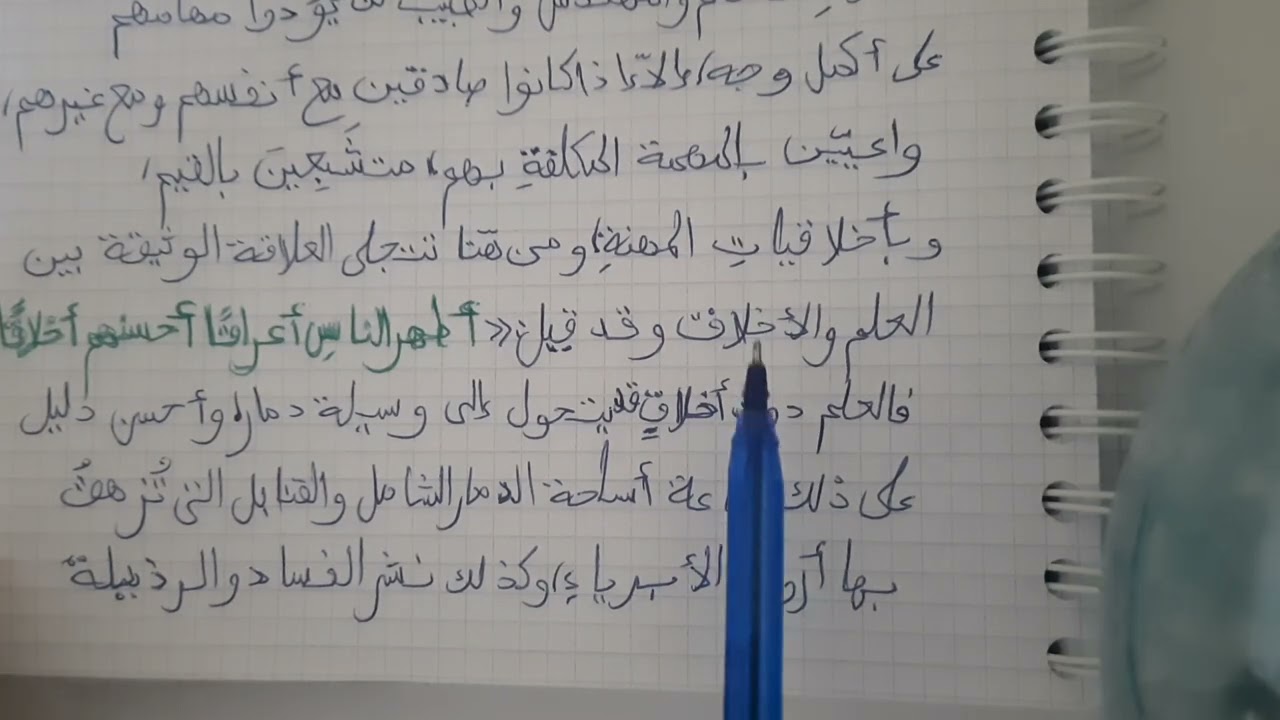 والطبيب لن يؤدوا مهامهم
على أكمل وجه، إلا إذا كانوا صادقين مع أنفسهم ومع غيرهم،
واعيّين بالمهمة المكلفةِ بهم، متشَبِعِينَ بالقيم،
وبأخلاقياتِ المهنةِ، ومن هنا تتجلى العلاقة الوثيقة بين
العلم والأخلاق وقد قيل: «أطهر الناسِ أعراقًا أحسنهم أخلاقًا
فالعلم أخلاقٍ قد يتحول إلى وسيلة دمار، وأحسن دليل
على ذلك أسلحة الدمار الشامل والقنابل التي تُزهقُ
بها الأبرياءِ، وكذلك نشر الفساد والرذيلة